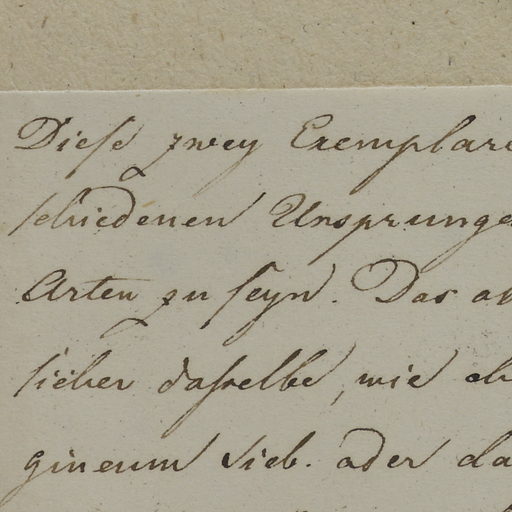 Diese zwey Exemplare
schiedenen Ursprunge
Arten zu seyn. Das
sicher dasselbe, wie
gineum Sieb. oder da